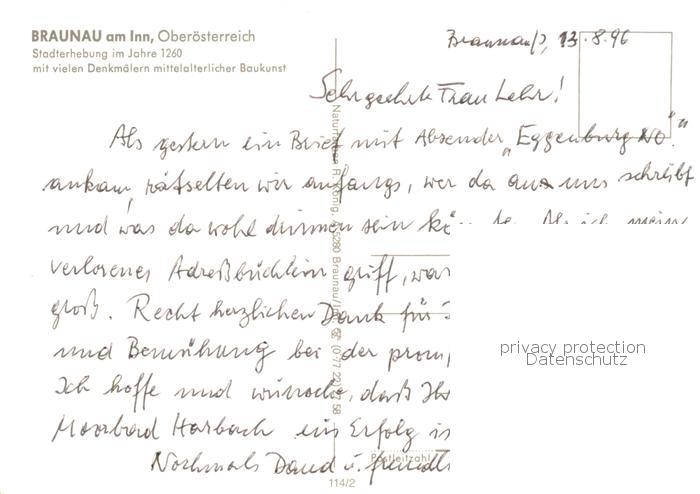 BRAUNAU am Inn, Oberösterreich
Stadterhebung im Jahre 1260
mit vielen Denkmälern mittelalterlicher Baukunst
Braunau/I, 13.8.96
Sehr geehrte Frau Lehr!
Als gestern ein Brief mit Absender „Eggenburg NÖ."
ankam, rätselten wir anfangs, wer da aus uns schreibt
und was da wohl drinnen sein
verlorenes Adreßbüchlein griff, war
groß. Recht herzlichen Dank für
und Bemühung bei der prom
Ich hoffe und wünsche, daß Ihr
Moorbad Harbach ein Erfolg is
Nochmals Dank u. freundl
privacy protection
Datenschutz
Postleitzahl
114/2